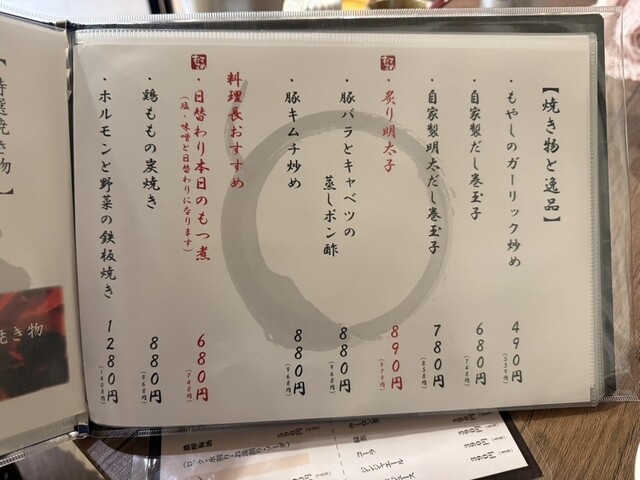 【焼き物と逸品】
・もやしのガーリック炒め 490円(539円)
・自家製だし巻玉子 680円(748円)
・自家製明太だし巻玉子 780円(858円)
・炙り明太子 890円(979円)
・豚バラとキャベツの
蒸しポン酢 880円(968円)
・豚キムチ炒め 880円(968円)
料理長おすすめ
・日替わり本日のもつ煮 680円(748円)
(塩・味噌と日替わりになります)
・鶏ももの炭焼き 880円(968円)
・ホルモンと野菜の鉄板焼き 1280円(1408円)
【特選焼き物】
焼き物
390円
390円
390円